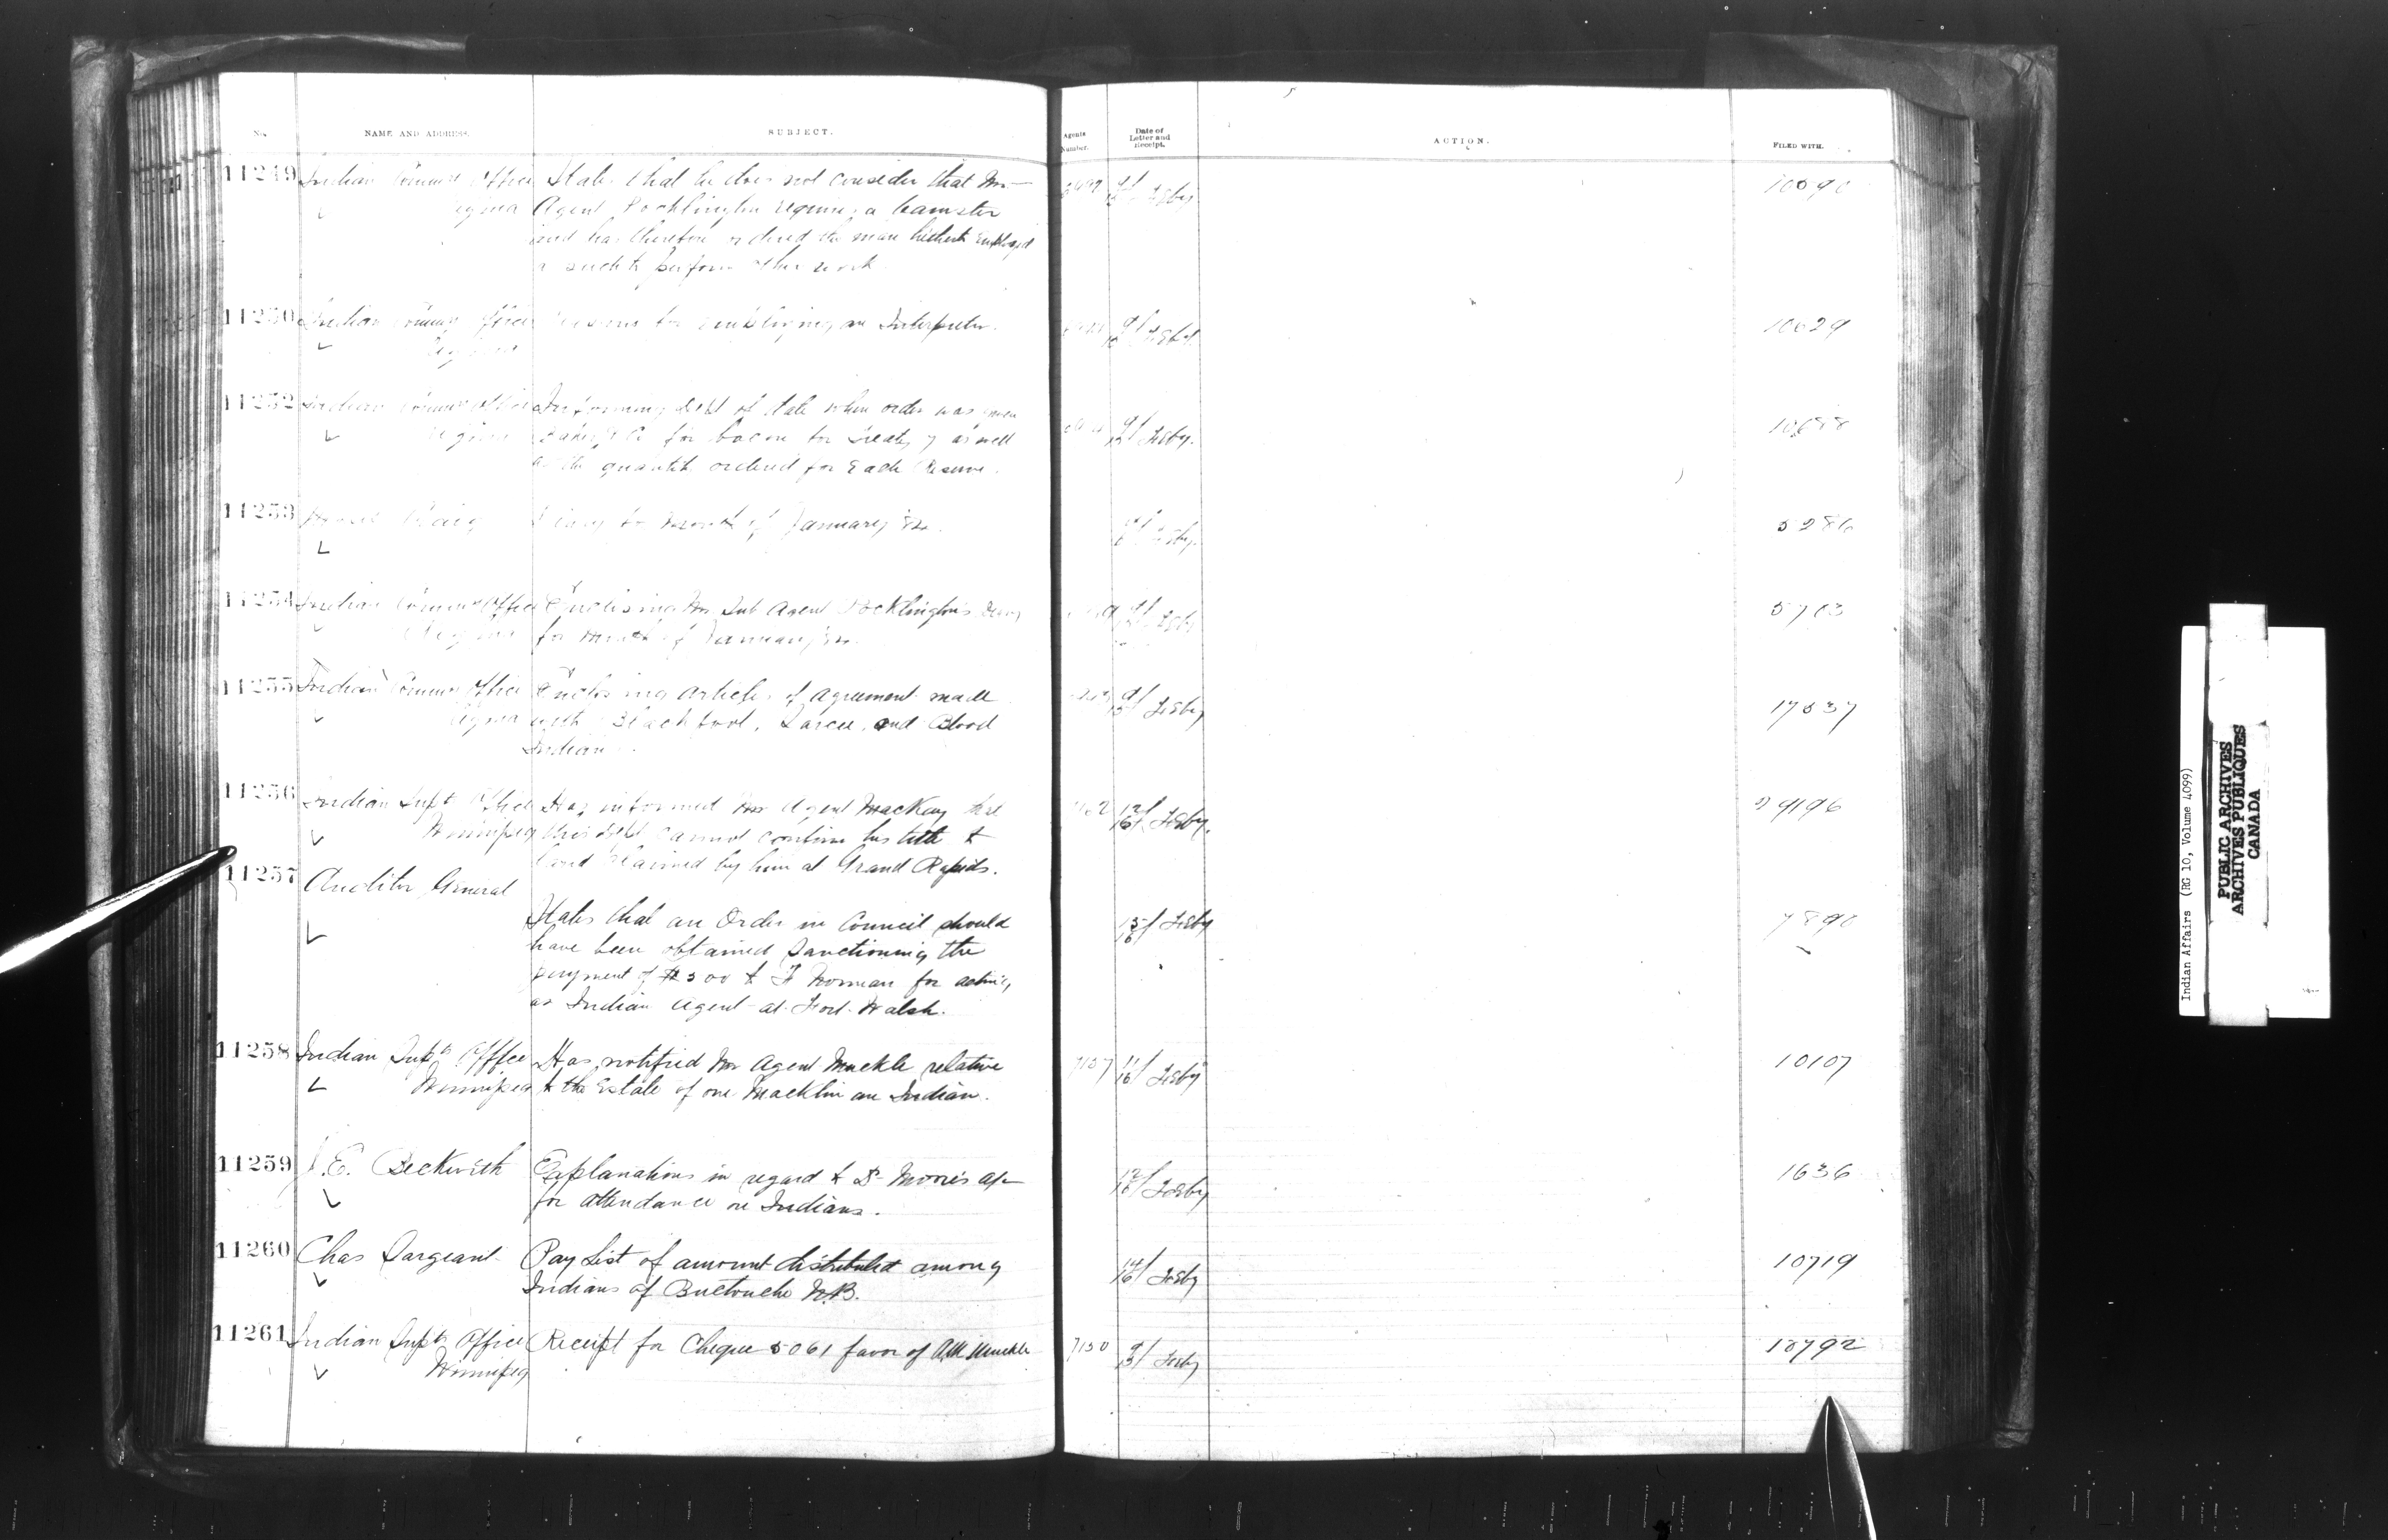 No. NAME AND ADDRESS. SUBJECT. Agents Number. Date of Letter and Receipt. ACTION. FILED WITH.
11249 Indian Commrs Office States that he does not consider that Mr
Regina Agent Pocklington requires a teamster
and has therefore ordered the man hitherto employed
as such to perform other work.
11250 Indian Commrs Office Reasons for employing an Interpreter. 10629
Regina
11252 Indian Commrs Office Informing Dept of date when order was given
Regina Baker & Co for bacon for Treaty 7 as well
as the quantity ordered for each Reserve.
11253 Craig Diary for month of January 84. 5286
11254 Indian Commrs Office Enclosing Mr Sub Agent Pocklington's Diary 5703
Regina for month of January 84.
11255 Indian Commrs Office Enclosing articles of agreement made 9/ Feby
Regina with Blackfoot, Sarcee, and Blood
Indians.
11256 Indian Supts Office Has informed Mr Agent MacKay that 9196
Winnipeg this Dept cannot confirm his title to
land claimed by him at Grand Rapids.
11257 Auditor General
States that an Order in Council should
have been obtained sanctioning the 7890
payment of $300 to F Norman for acting
as Indian Agent at Fort Walsh.
11258 Indian Supts Office Has notified Mr Agent Muckle relative 7157 11/16 Feby 10107
Winnipeg to the Estate of one Macklin an Indian.
11259 J.E. Beckwith Explanations in regard to Dr Morris a/c 12/16 Feby 1636
for attendance on Indians.
11260 Chas Sargeant Pay List of amount distributed among 14/16 Feby 10719
Indians of Buctouche N.B.
11261 Indian Supts Office Receipt for Cheque 5061 favor of A M Muckle 7150 Feby 10792
Winnipeg
Indian Affairs (RG 10, Volume 4099)
PUBLIC ARCHIVES
ARCHIVES PUBLIQUES
CANADA